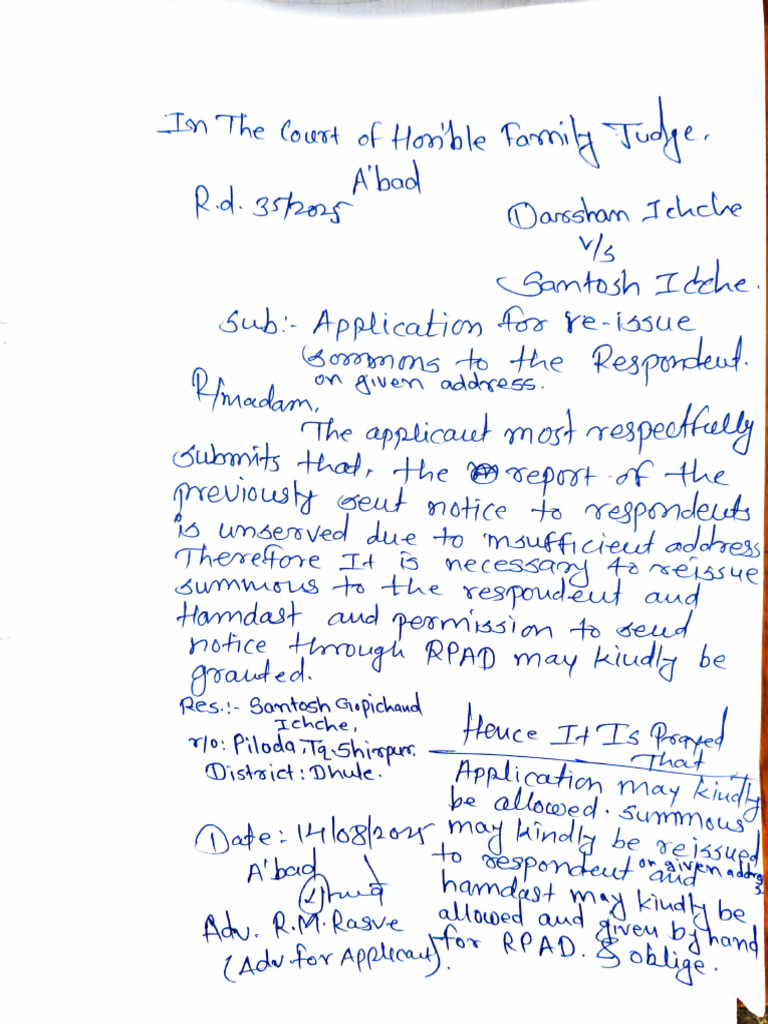 In The Court of Hon'ble Family Judge,
A'bad
R.d. 35/2025
Darsshan Ichche
v/s
Santosh Icche.
Sub:- Application for re-issue
sommons to the Respondent.
on given address.
R/madam,
The applicant most respectfully
submits that, the report of the
previously sent notice to respondents
is unserved due to insufficient address
Therefore It is necessary to reissue
summons to the respondent and
Hamdast and permission to send
notice through RPAD may kindly be
granted.
Res.:- Santosh Gopichand
Ichche,
r/o: Piloda, Tq. Shirpur.
District: Dhule.
Hence It Is Prayed
That
Application may kindly
be allowed. summons
may kindly be reissued
to respondent on given address and
hamdast may kindly be
allowed and given by hand
for RPAD. & oblige.
Date: 14/08/2025
A'bad
Adv. R.M. Rasve
(Adv for Applicant).